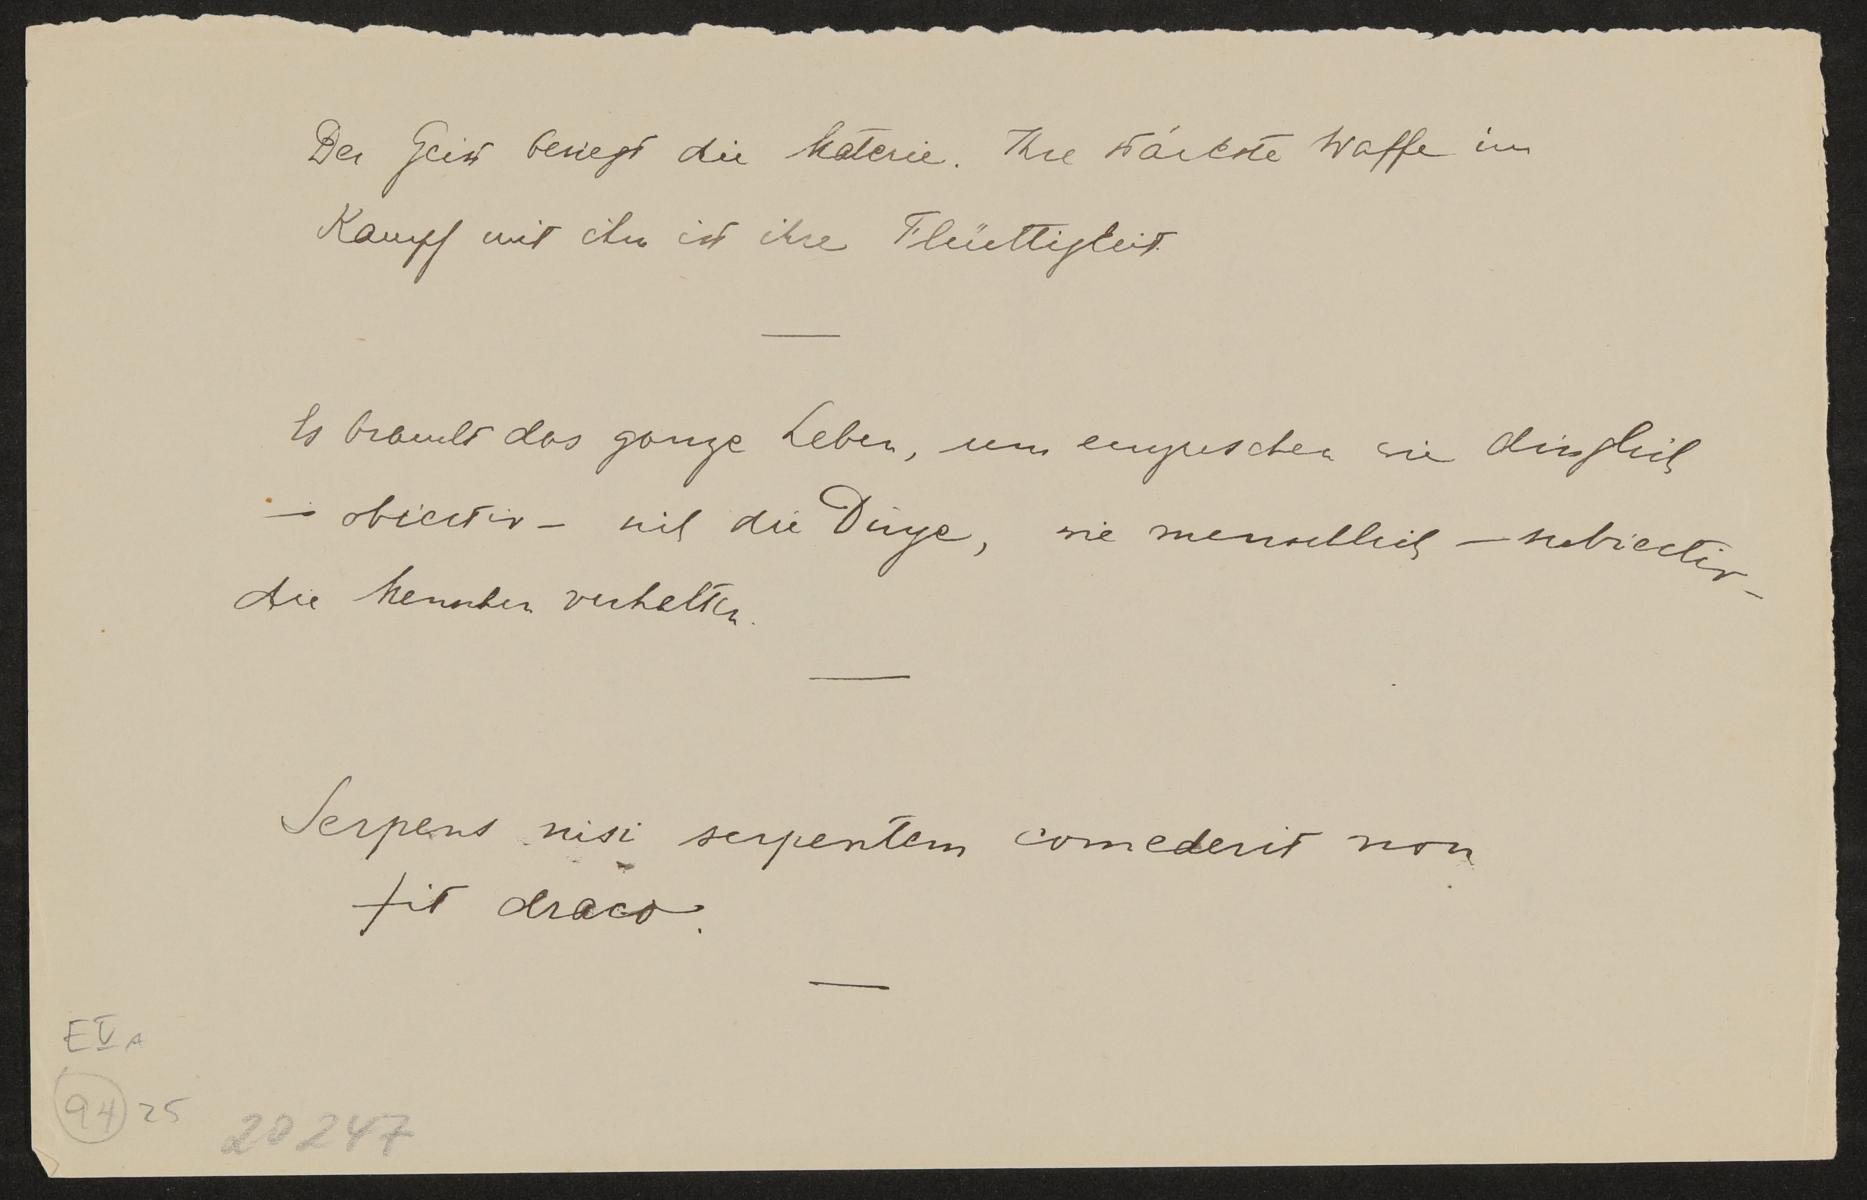 Der Geist besiegt die Materie. Ihre stärkste Waffe im
Kampf mit ihm ist ihre Flüchtigkeit.
Es braucht das ganze Leben, um einzusehen wie dinglich
— obiectiv — sich die Dinge, wie menschlich — subiectiv —
die Menschen verhalten.
Serpens nisi serpentem comederit non
fit draco.
E V A
94 25 20247